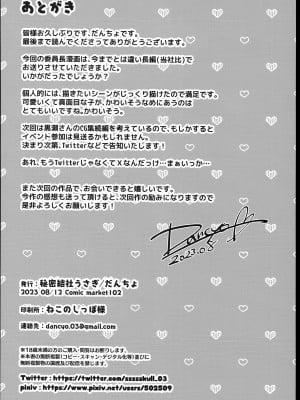 あとがき
皆様お久しぶりです、だんちょです。
最後まで読んでくださってありがとうございます。
今回の委員長漫画は、今までとは違い長編(当社比)で
お送りさせていただきました。
いかがだったでしょうか?
個人的には、描きたいシーンがじっくり描けたので満足です。
可愛くて真面目な子が、かわいそうなめにあうのは
とてもいいですね。かわいそう。
次回は黒瀬さんのCG集続編を考えているので、もしかすると
イベント参加は見送るかもしれません。
決まり次第、Twitterなどで告知いたします!
あれ、もうTwitterじゃなくてXなんだっけ…まぁいっか…
また次回の作品で、お会いできると嬉しいです。
今作の感想も送って頂けると、次回作の励みになりますので
是非よろしくお願いします!
Dancyo
2023.08
発行:秘密結社うさぎ/だんちょ
2023 08/12 Comic market102
印刷所:ねこのしっぽ様
連絡先:dancyo.03@gmail.com
※18歳未満の方のご購入・閲覧はお断りします。
※本書の無断複製(コピー・スキャン・デジタル化等)並びに
無断複製物の譲渡及び配信を禁じます。
Twitter:https://twitter.com/ssssskull_03
pixiv:https://www.pixiv.net/users/502509